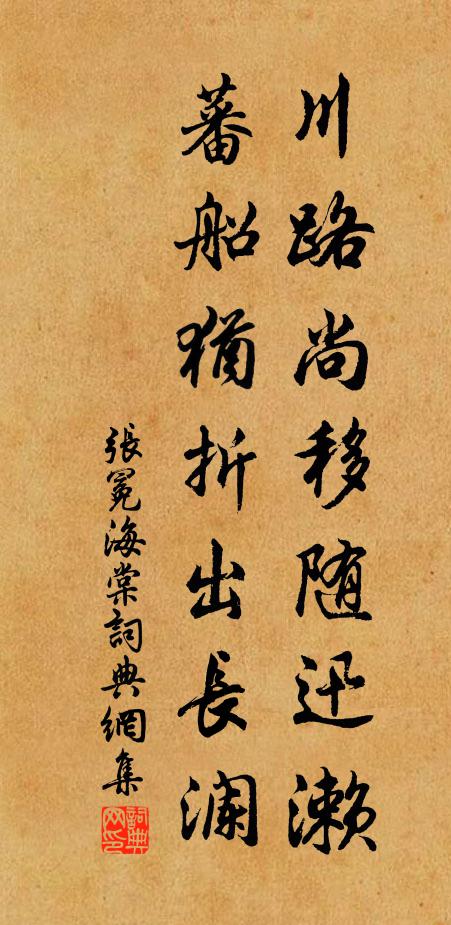 川路尚移随迅濑
蕃船犹折出長澜
張冕海棠詞典網集
詞典网印